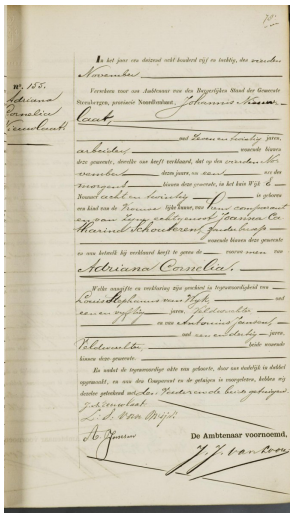 Nº. 155.
Adriana
Cornelia
Nieuwlaat
In het jaar een duizend acht honderd vijf en tachtig, den vierden
November
Verscheen voor ons Ambtenaar van den Burgerlijken Stand der Gemeente
Steenbergen, provincie Noordbrabant, Johannis Nieuw-
laat,
oud zeven en twintig jaren,
arbeider wonende binnen
deze gemeente, dewelke ons heeft verklaard, dat op den vierden No-
vember dezes jaars, om een ure des
morgens binnen deze gemeente, in het huis Wijk E
Nummer acht en twintig is geboren
een kind van de Vrouwelijke kunne, van hem comparant
en van zijne echtgenoot Joanna Ca-
tharina Schouteren, zonder beroep
wonende binnen deze gemeente
en aan hetwelk hij verklaard heeft te geven de voornamen van
Adriana Cornelia.
Welke aangifte en verklaring zijn geschied in tegenwoordigheid van
Louis Stephanus van Wijk oud
een en vijftig jaren, Veldwachter
en van Antonius Jansen
oud een en dertig jaren,
Veldwachter beide wonende
binnen deze gemeente.
En nadat de tegenwoordige akte van geboorte, door ons dadelijk in dubbel
opgemaakt, en aan den Comparant en de getuigen is voorgelezen, hebben wij
dezelve geteekend met den Vader en de beide getuigen
J. Nieuwlaat
L. S. van Wijk
A. Jansen
De Ambtenaar voornoemd,
J. J. van Loon